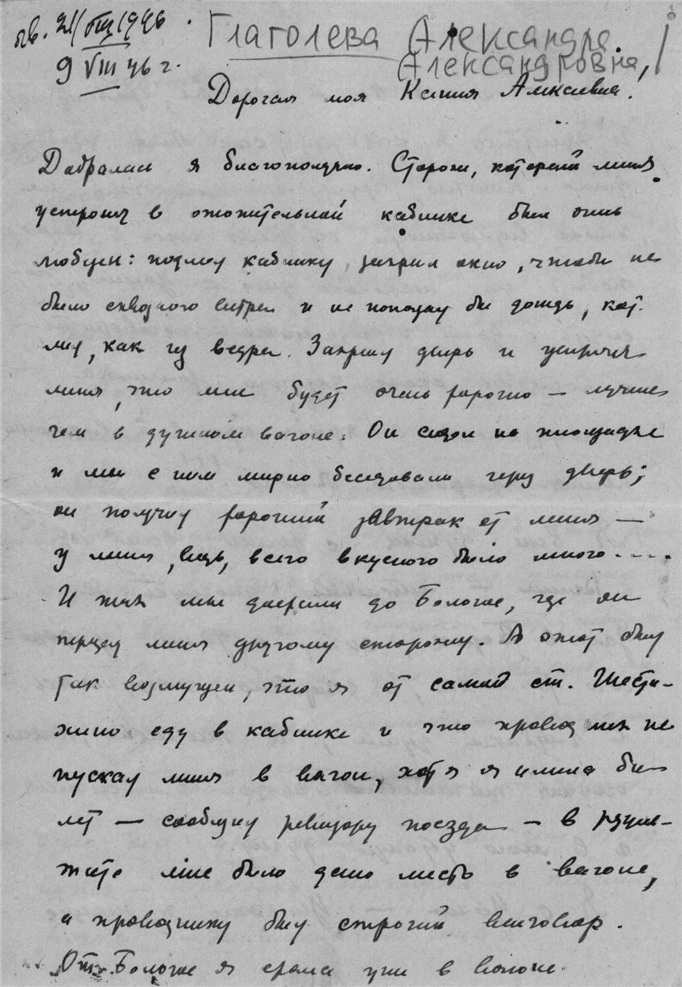 отв. 21/VIII 1946.
9 VIII 46 г.
Глаголева Александра
Александровна,
Дорогая моя Ксения Алексеевна.
Добралась я благополучно. Сторож, который меня
устроил в отопительной кабинке был очень
любезен: подмел кабинку, закрыл окно, чтобы не
было сквозного ветра и не попадал бы дождь, кот.
лил, как из ведра. Закрыл дверь и уверял
меня, что мне будет очень хорошо — лучше
чем в душном вагоне. Он сидел на площадке
и мы с ним мирно беседовали через дверь;
он получил хороший завтрак от меня —
у меня, ведь, всего вкусного было много....
И так мы доехали до Бологое, где он
передал меня другому сторожу. А этот был
так возмущен, что я от самой ст.
еду в кабинке и что проводник не
пускал меня в вагон, хотя я имела би-
лет — сообщил ревизору поезда — в резуль-
тате мне было дано место в вагоне,
а проводнику был строгий выговор.
От Бологое я ехала уже в вагоне.